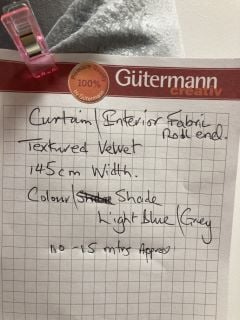 100%
Gütermann
creativ
Curtain/Interior Fabric
Roll end.
Textured Velvet
145cm Width.
Colour/ Shade
Light blue/Grey
10 - 15 mtrs Approx